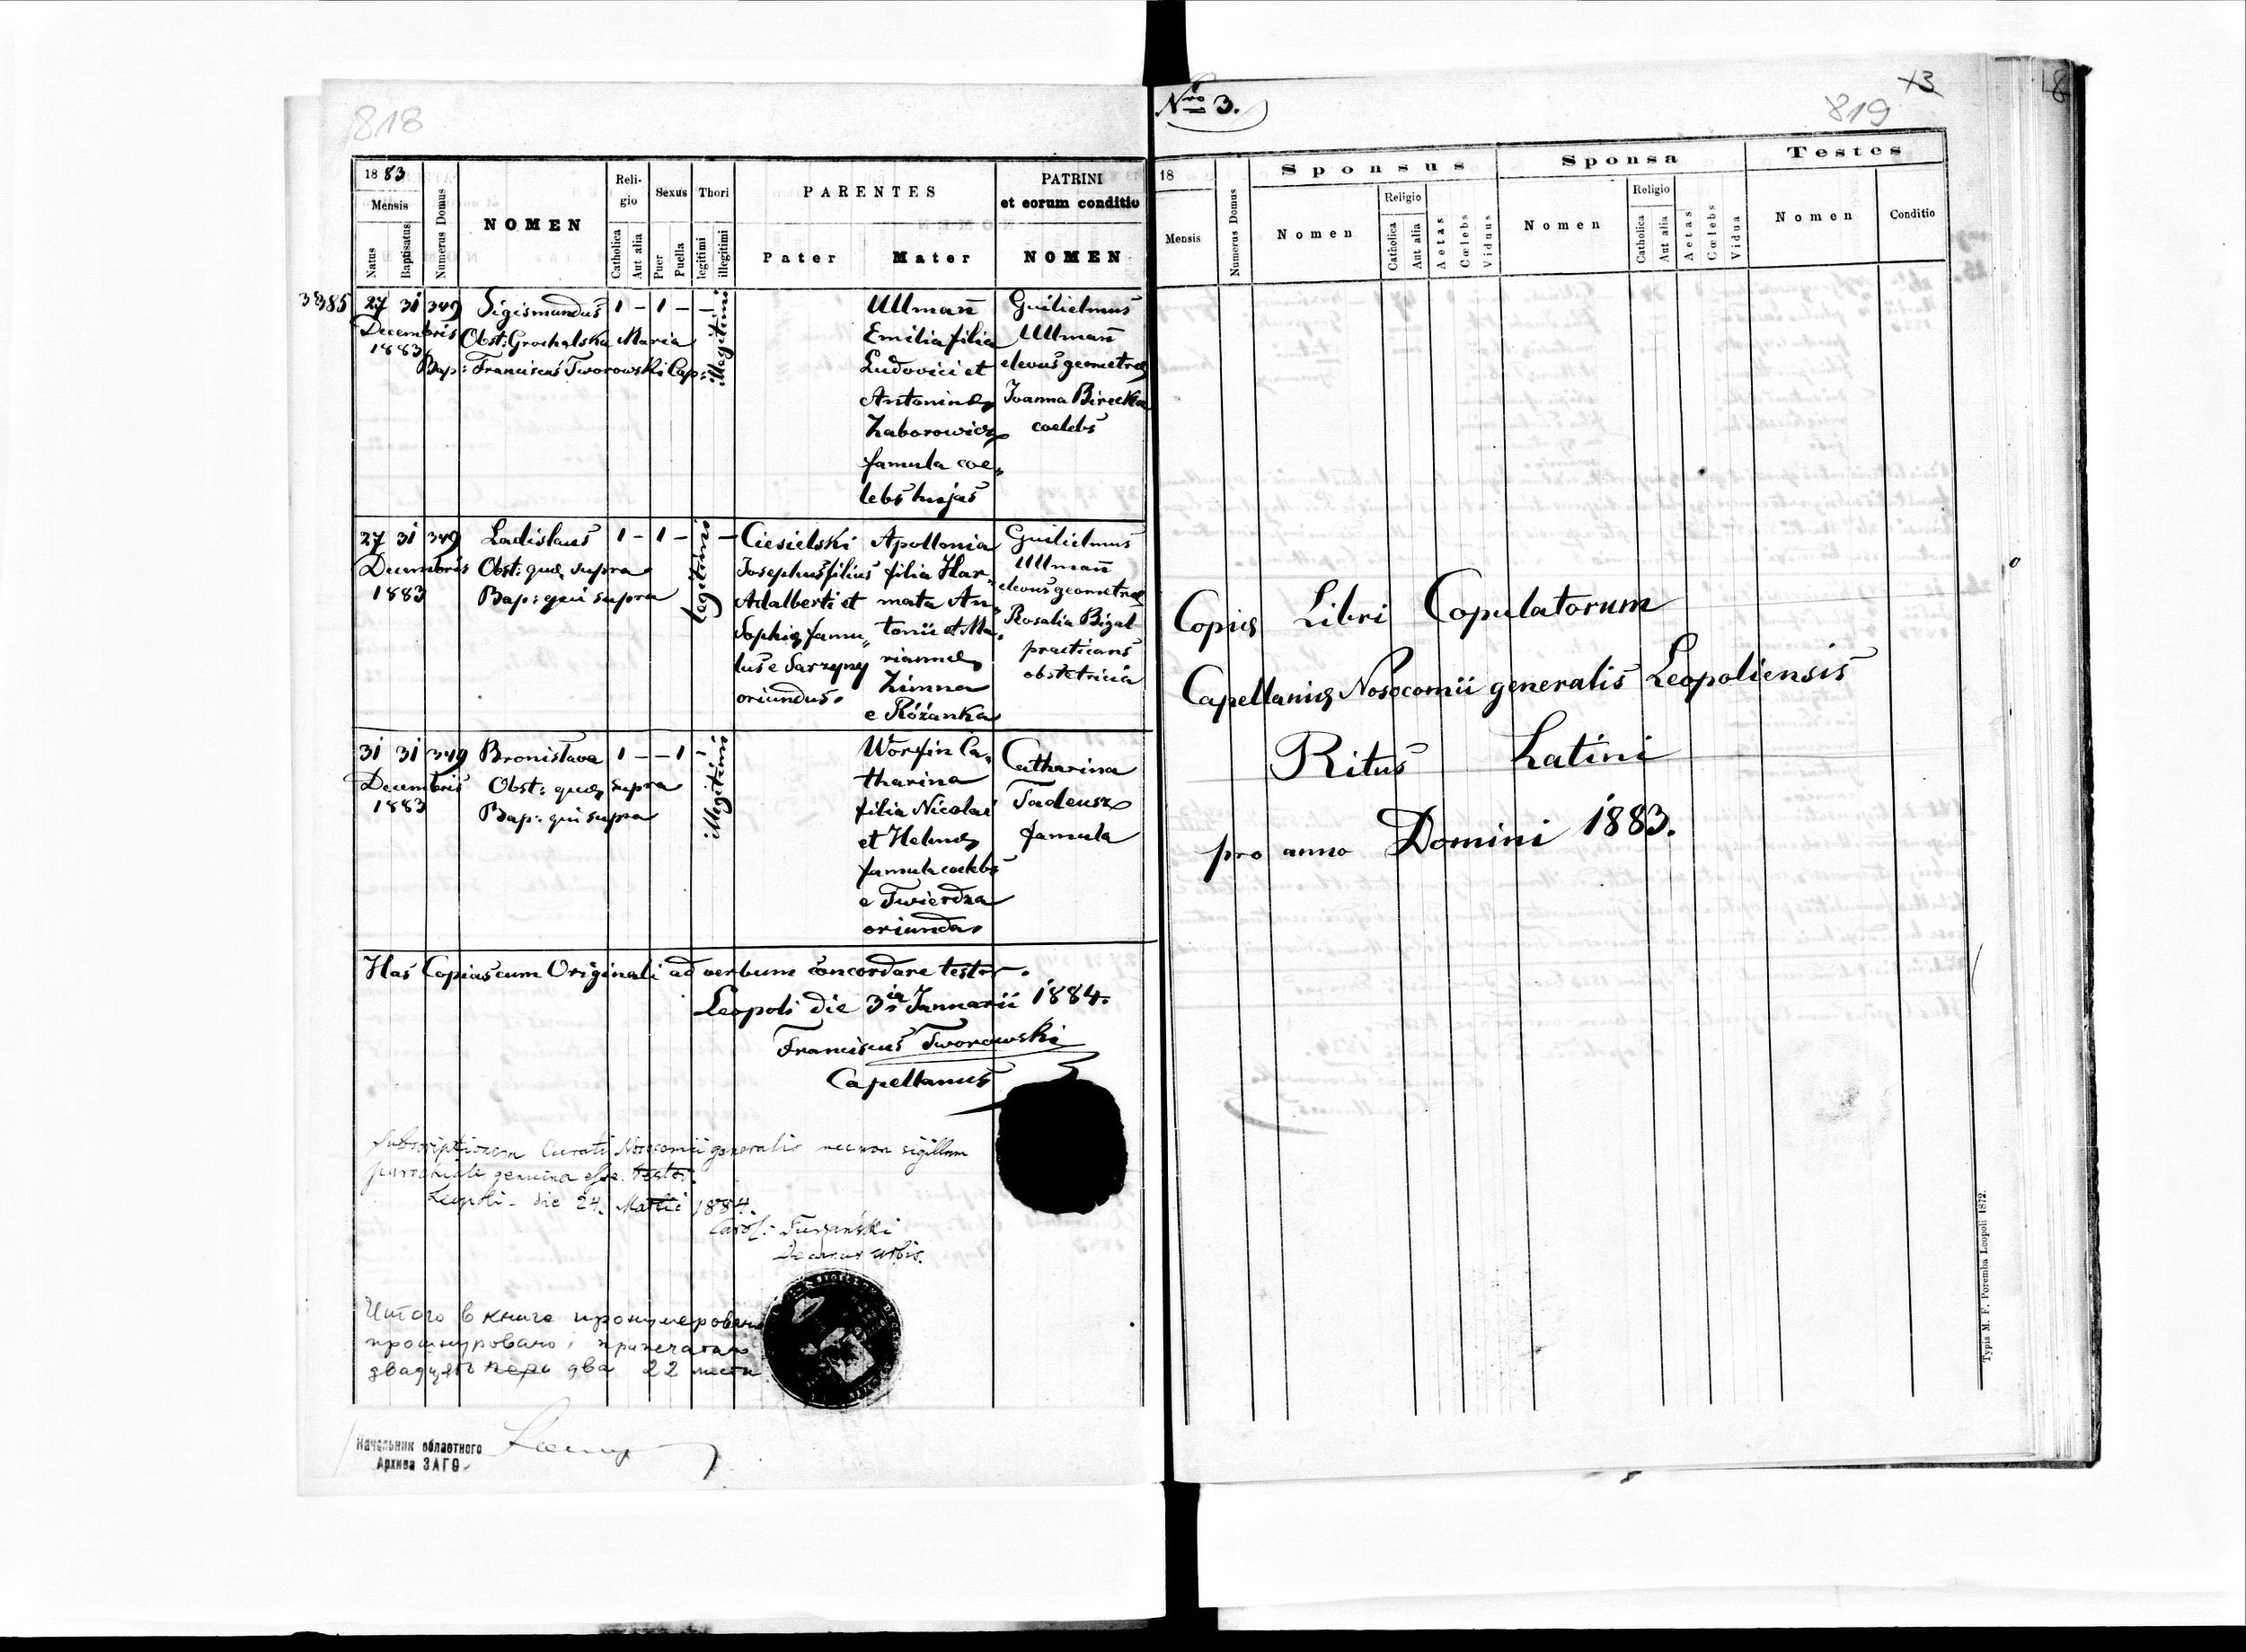 818
1883
Mensis
Natus
Baptisatus
Numerus Domus
NOMEN
Reli-
gio
Catholica
Aut alia
Sexus
Puer
Puella
Thori
legitimi
illegitimi
PARENTES
Pater
Mater
PATRINI
et eorum conditio
NOMEN
27 31 349 Sigismundus 1 - 1 -
Decembris Obst: Grochalska Maria
1883
Bap: Franciscus Tworowski Cap:
illegitimi
Ullman̄
Emilia filia
Ludovici et
Antoninæ
Zaborowicz
famula coe„
lebs hujas
Guilielmus
Ullman̄
elevus geometræ
Joanna Birecka
coelebs
27 31 349 Ladislaus 1 - 1 -
Decembris Obst: quæ supra
1883 Bap: qui supra
legitimi
Ciesielski
Josephus filius
Adalberti et
Sophiæ famu„
lus e Sarzyny
oriundus.
Apollonia
filia Har„
mata An„
tonii et Ma„
riannæ
Zimna
e Różanka
Guilielmus
Ullman̄
elevus geometræ
Rosalia Bigal
practicans
obstetricia
31 31 349 Bronislava 1 - - 1
Decembris Obst: quæ supra
1883 Bap: qui supra
illegitimi
Worfin Ca„
tharina
filia Nicolai
et Helenæ
famula coelebs
e Twierdza
oriunda.
Catharina
Tadeusz
famula
Has Copias cum Originali ad verbum concordare testor.
Leopoli die 3ia Januarii 1884.
Franciscus Tworowski
Capellanus
Subscriptionem Curati Nosocomii generalis necnon sigillum
parochiale genuina esse testor.
Leopoli - die 24. Martii 1884.
Carol:
Decanus urbis.
Итого в книге пронумеровано
прошнуровано і припечатано
двадцать два 22 листа
Начальник областного
Архива ЗАГС
Nro 3.
819
13
18
Mensis
Numerus Domus
Sponsus
Nomen
Religio
Catholica
Aut alia
Aetas
Cœlebs
Viduus
Sponsa
Nomen
Religio
Catholica
Aut alia
Aetas
Cœlebs
Vidua
Testes
Nomen
Conditio
Copiæ Libri Copulatorum
Capellaniæ Nosocomii generalis Leopoliensis
Ritus Latini
pro anno Domini 1883.
Typis M. F. Poremba Leopoli 1872.